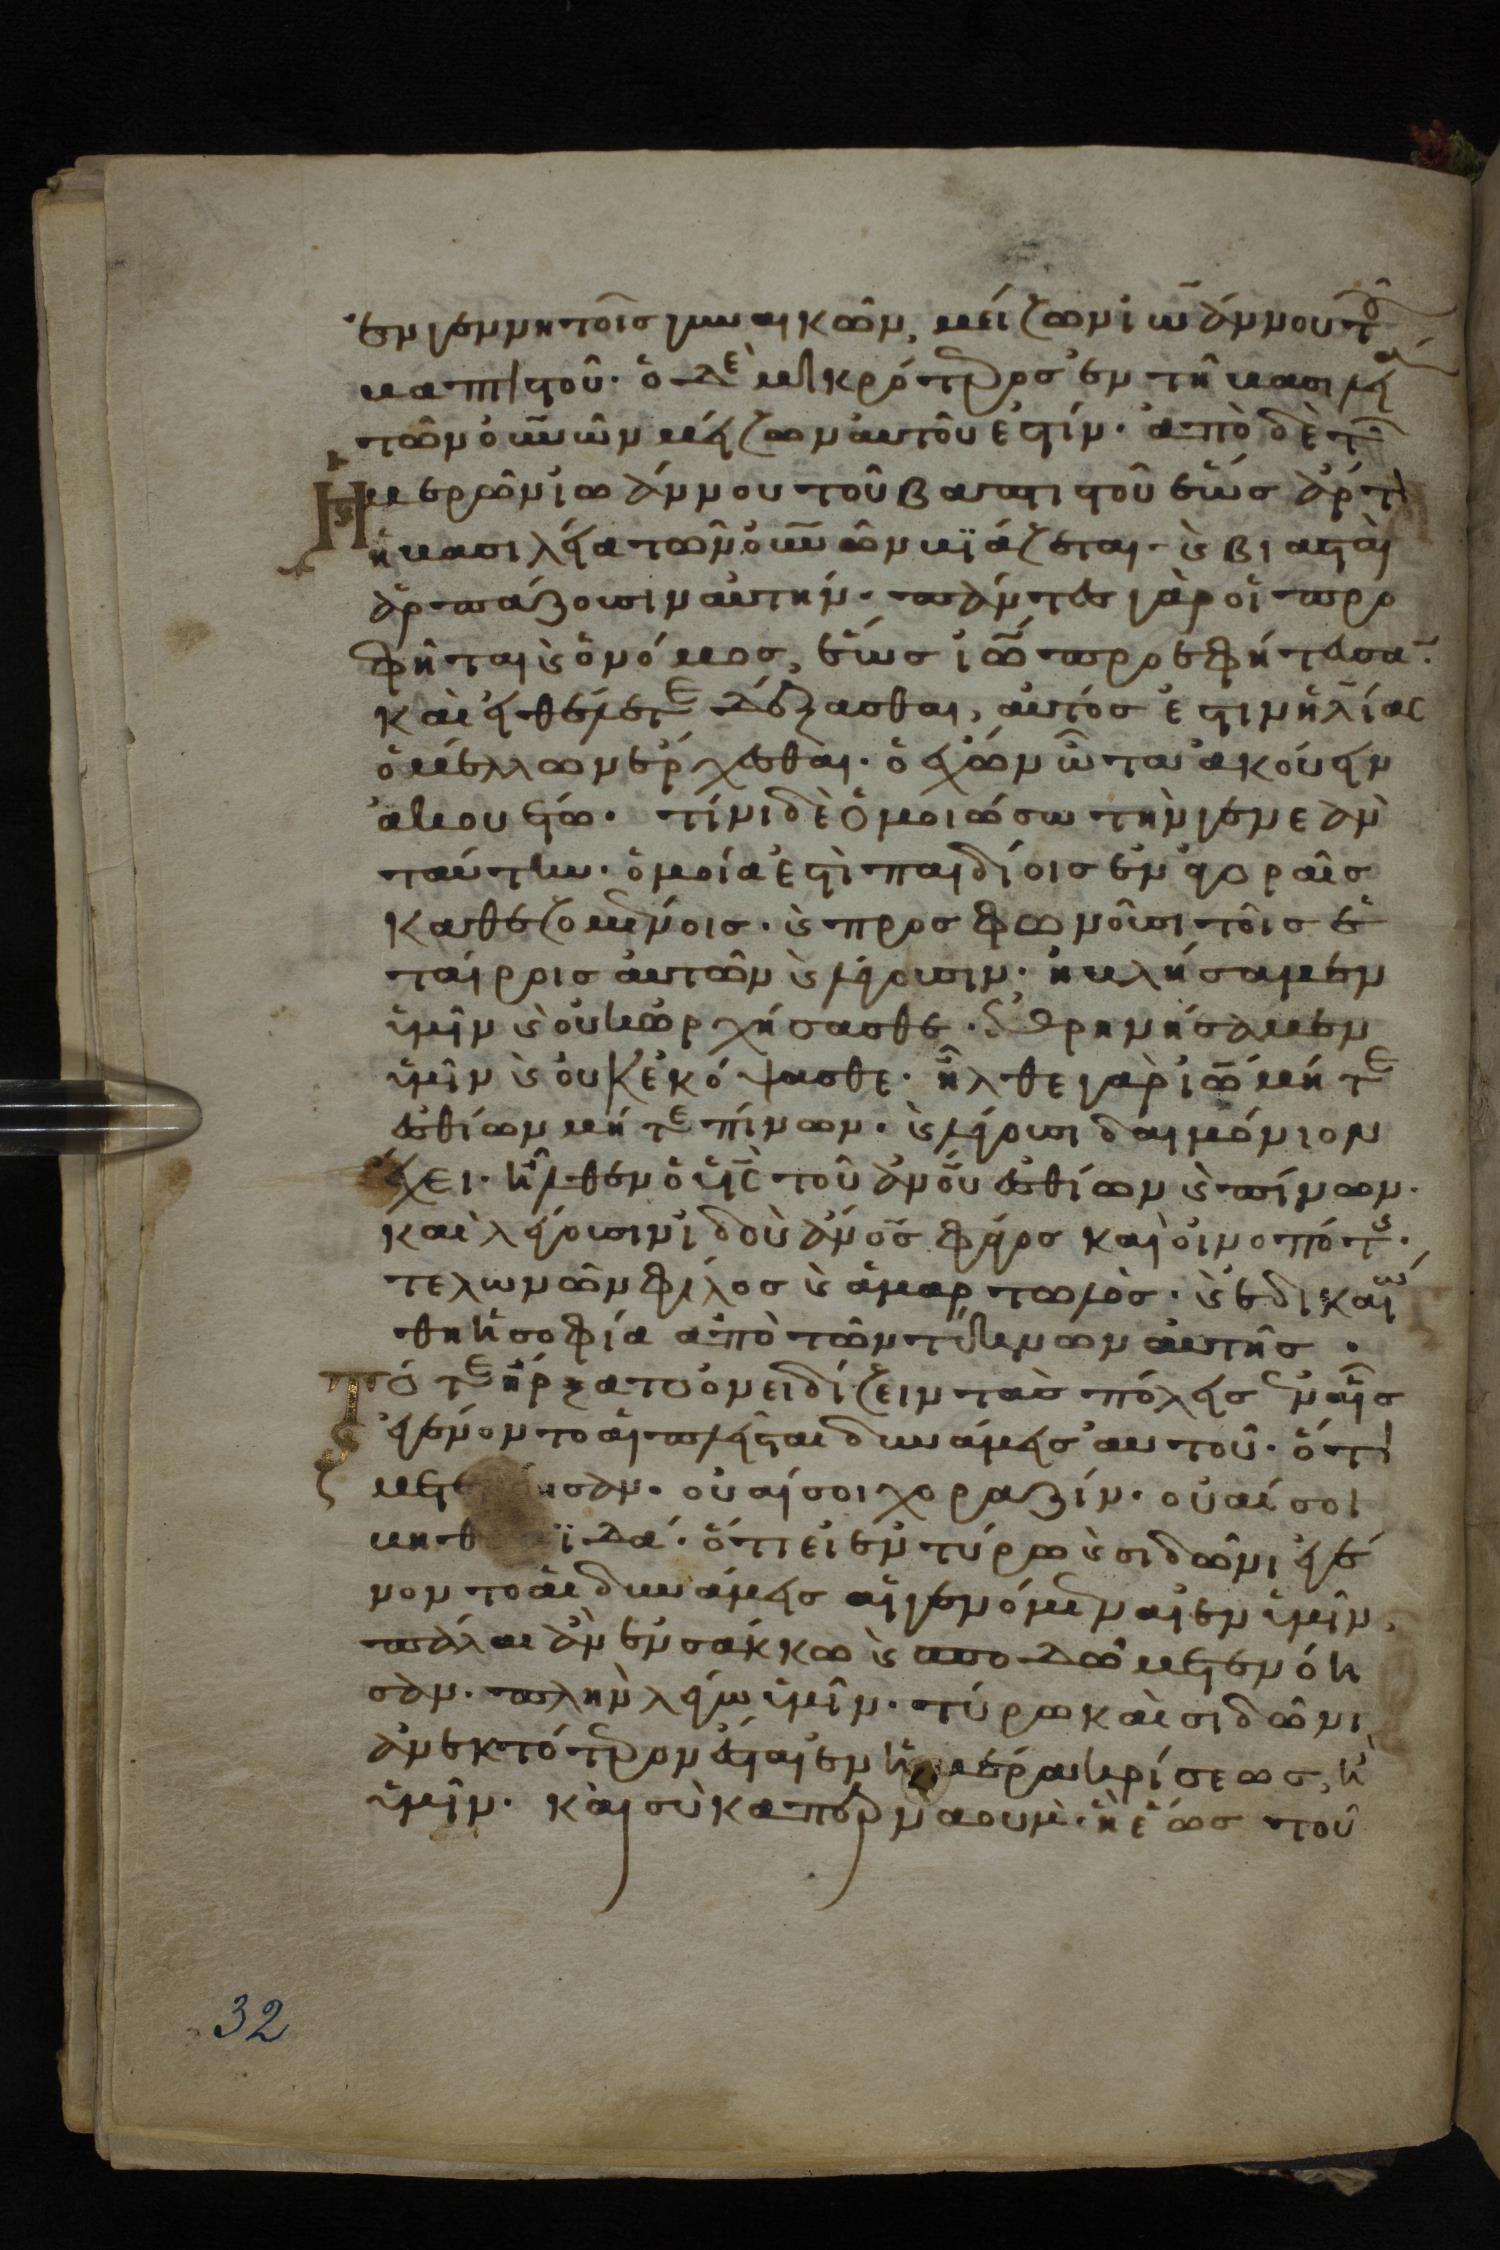 ἐν γεννητοῖς γυναικῶν, μείζων ἰω̅άννου τοῦ
βαπτιστοῦ· ὁ δὲ μικρότερος ἐν τῆ βασιλεία
τῶν οὐν̅ῶν μείζων αὐτοῦ ἐστίν· ἀπὸ δὲ τῶν
ἡμερῶν ἰωάννου τοῦ βαπτιστοῦ ἕως ἄρτι
ἡ βασιλεία τῶν οὐν̅ῶν βϊάζεται· ϗ βιασταὶ
ἁρπάζουσιν αὐτήν· πάντες γὰρ οἱ προ
φῆται ϗ ὁ νόμος, ἕως ἰω̅ προεφήτευσαν·
καὶ εἰ θέλετε δέξασθαι, αὐτός ἐστιν ἠλίας
ὁ μέλλων ἔρχεσθαι· ὁ ἔχων ὦτα ἀκούειν
ἀκουέτω· τίνι δὲ ὁμοιώσω τὴν γενεὰν
ταύτην· ὁμοία ἐστὶ παιδίοις ἐν ἀγοραῖς
καθεζομένοις· ϗ προσφωνοῦσι τοῖς ἑ
ταίροις αὐτῶν ϗ λέγουσιν· ηὐλήσαμεν
ὑμῖν ϗ οὐκ ὠρχήσασθε· ἐθρηνήσαμεν
ὑμῖν ϗ οὐκ ἐκόψασθε· ἦλθε γὰρ ἰω̅ μήτε
ἐσθίων μήτε πίνων· ϗ λέγουσι δαιμόνιον
ἔχει· ἦλθεν ὁ υἱς̅ τοῦ ἀνο̅υ ἐσθίων ϗ πίνων·
καὶ λέγουσιν ἰδοὺ ἀνο̅ς φάγος καὶ οἰνοπότης·
τελωνῶν φίλος ϗ ἁμαρτωλὸς· ϗ ἐδικαιώ
θη ἡ σοφία ἀπὸ τῶν τέκνων αὐτῆς·
τότε ἤρξατο ὀνειδίζειν τὰς πόλεις ἐν αἷς
ἐγένοντο αἱ πλεῖσται δυνάμεις αὐτοῦ· ὅτι
μετ ησαν· οὐαί σοι χοραζίν· οὐαί σοι
βηθ ϊδά· ὅτι εἰ ἐν τύρω ϗ σιδῶνι ἐγέ
νοντο αἱ δυνάμεις αἱ γενόμεναι ἐν ὑμῖν,
πάλαι ἂν ἐν σάκκω ϗ σποδῶ μετενόη
σαν· πλὴν λέγω ὑμῖν· τύρω καὶ σιδῶνι
ἀνεκτότερον ἔσται ἐν ἡμέρα κρίσεως, ἢ
ὑμῖν· καὶ σὺ καπερναούμ· ἡ ἕως τοῦ
32